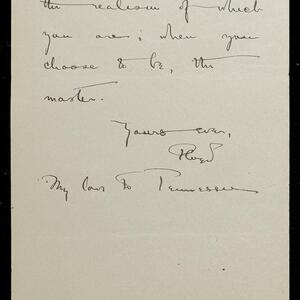 the realism of which
you are; when you
choose to be, the
master.
Yours ever,
My love to Tennessee